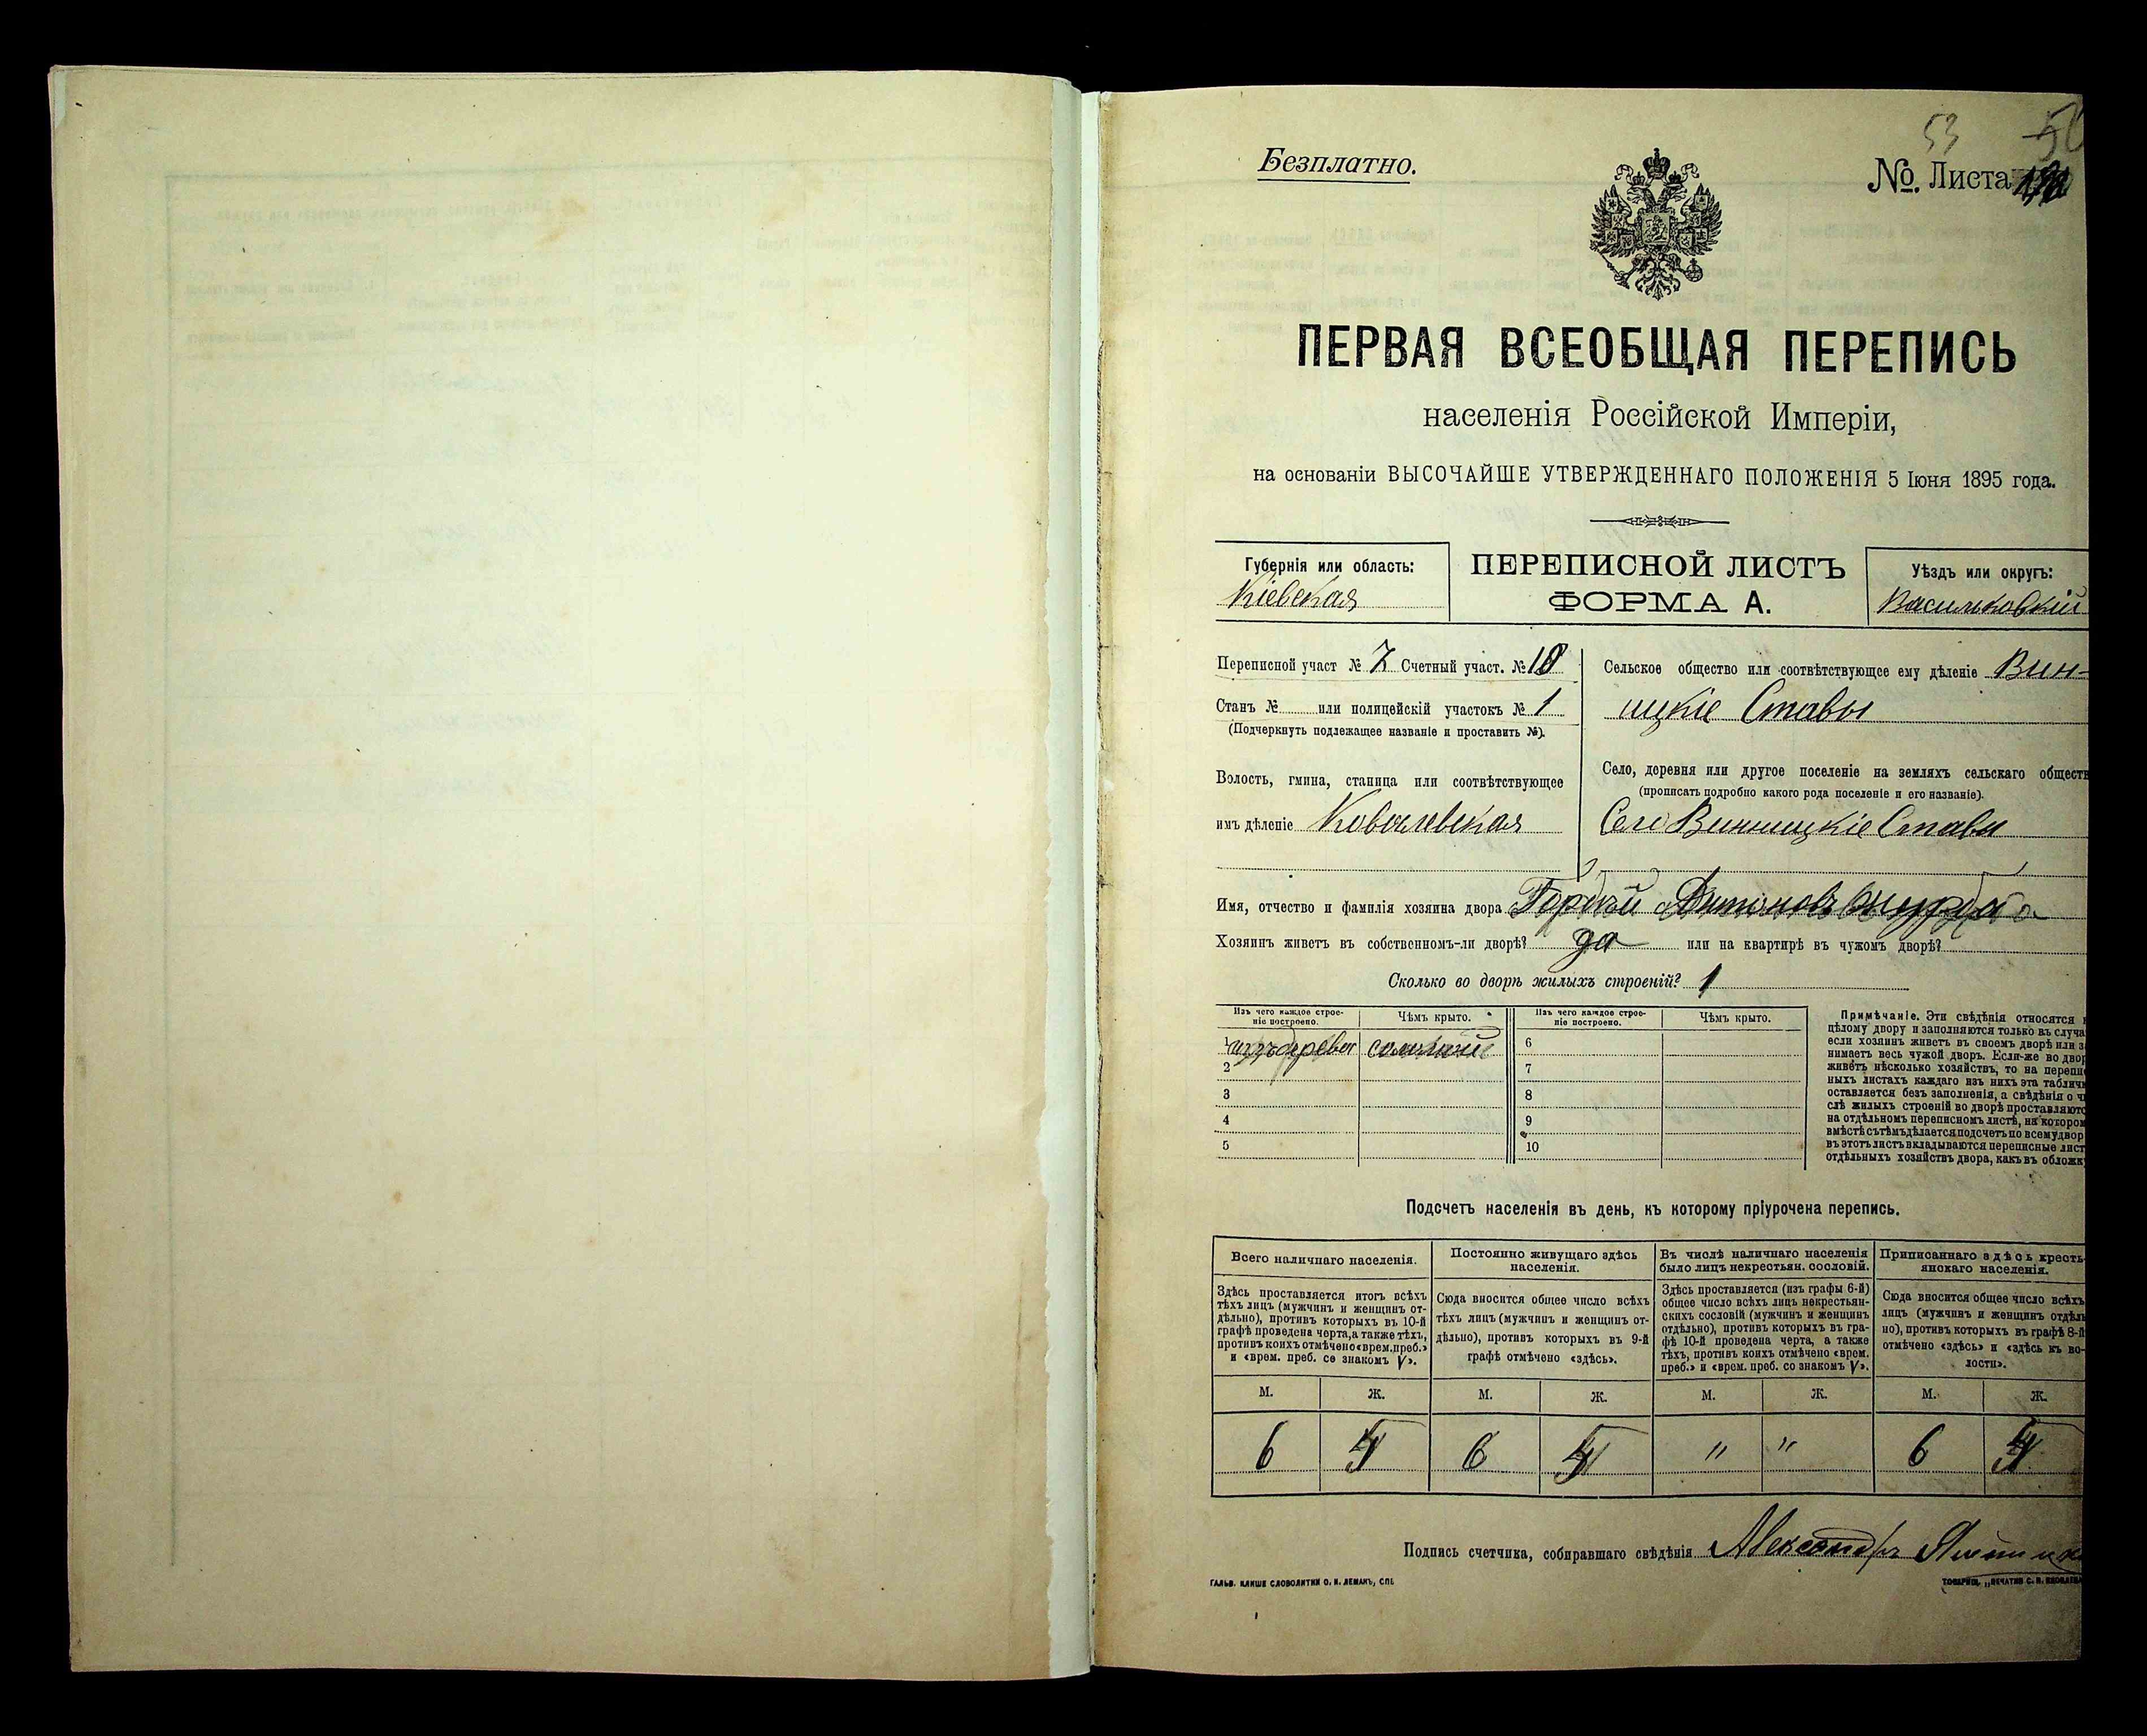 53
Безплатно.
№. Листа
ПЕРВАЯ ВСЕОБЩАЯ ПЕРЕПИСЬ
населенія Россійской Имперіи,
на основаніи ВЫСОЧАЙШЕ УТВЕРЖДЕННАГО ПОЛОЖЕНІЯ 5 Іюня 1895 года.
Губернія или область:
Кіевская
ПЕРЕПИСНОЙ ЛИСТЪ
ФОРМА А.
Уѣздъ или округъ:
Васильковскій
Переписной участ № 7 Счетный участ. № 10
Станъ № или полицейскій участокъ № 1
(Подчеркнуть подлежащее названіе и проставить №).
Волость, гмина, станица или соотвѣтствующее
имъ дѣленіе Ковалевская
Сельское общество или соотвѣтствующее ему дѣленіе Вин-
ницкіе Ставы
Село, деревня или другое поселеніе на земляхъ сельскаго обществ
(прописать подробно какого рода поселеніе и его названіе).
Село Винницкіе Ставы
Имя, отчество и фамилія хозяина двора Гордѣй Антоновъ
Хозяинъ живетъ въ собственномъ-ли дворѣ? да или на квартирѣ въ чужомъ дворѣ?
Сколько во дворѣ жилыхъ строеній? 1
Изъ чего каждое строе-
ніе построено.
Чѣмъ крыто.
Изъ чего каждое строе-
ніе построено.
Чѣмъ крыто.
1 изъ дерева соломой 6
2 7
3 8
4 9
5 10
Примѣчаніе. Эти свѣдѣнія относятся
цѣлому двору и заполняются только въ случа
если хозяинъ живетъ въ своемъ дворѣ или з
нимаетъ весь чужой дворъ. Если-же во двор
живетъ нѣсколько хозяйствъ, то на перепи
ныхъ листахъ каждаго изъ нихъ эта табличк
оставляется безъ заполненія, а свѣдѣнія о ч
слѣ жилыхъ строеній во дворѣ проставляютс
на отдѣльномъ переписномъ листѣ, на котором
вмѣстѣ съ тѣмъ дѣлается подсчетъ по всему двор
въ этотъ листъ вкладываются переписные лист
отдѣльныхъ хозяйствъ двора, какъ въ обложк
Подсчетъ населенія въ день, къ которому пріурочена перепись.
Всего наличнаго населенія.
Здѣсь проставляется итогъ всѣхъ
тѣхъ лицъ (мужчинъ и женщинъ от-
дѣльно), противъ которыхъ въ 10-й
графѣ проведена черта, а также тѣхъ,
противъ коихъ отмѣчено «врем. преб.»
и «врем. преб. со знакомъ V».
Постоянно живущаго здѣсь
населенія.
Сюда вносится общее число всѣхъ
тѣхъ лицъ (мужчинъ и женщинъ от-
дѣльно), противъ которыхъ въ 9-й
графѣ отмѣчено «здѣсь».
Въ числѣ наличнаго населенія
было лицъ некрестьян. сословій.
Здѣсь проставляется (изъ графы 6-й)
общее число всѣхъ лицъ некрестьян-
скихъ сословій (мужчинъ и женщинъ
отдѣльно), противъ которыхъ въ гра-
фѣ 10-й проведена черта, а также
тѣхъ, противъ коихъ отмѣчено «врем.
преб.» и «врем. преб. со знакомъ V».
Приписаннаго здѣсь кресть-
янскаго населенія.
Сюда вносится общее число всѣхъ
лицъ (мужчинъ и женщинъ отдѣль
но), противъ которыхъ въ графѣ 8-й
отмѣчено «здѣсь» и «здѣсь къ во-
лости».
М. Ж. М. Ж. М. Ж. М. Ж.
6 6 " " 6
Подпись счетчика, собиравшаго свѣдѣнія Александръ
ГАЛЬВ. КЛИШЕ СЛОВОЛИТНИ О. И. ЛЕМАНЪ, СПБ.